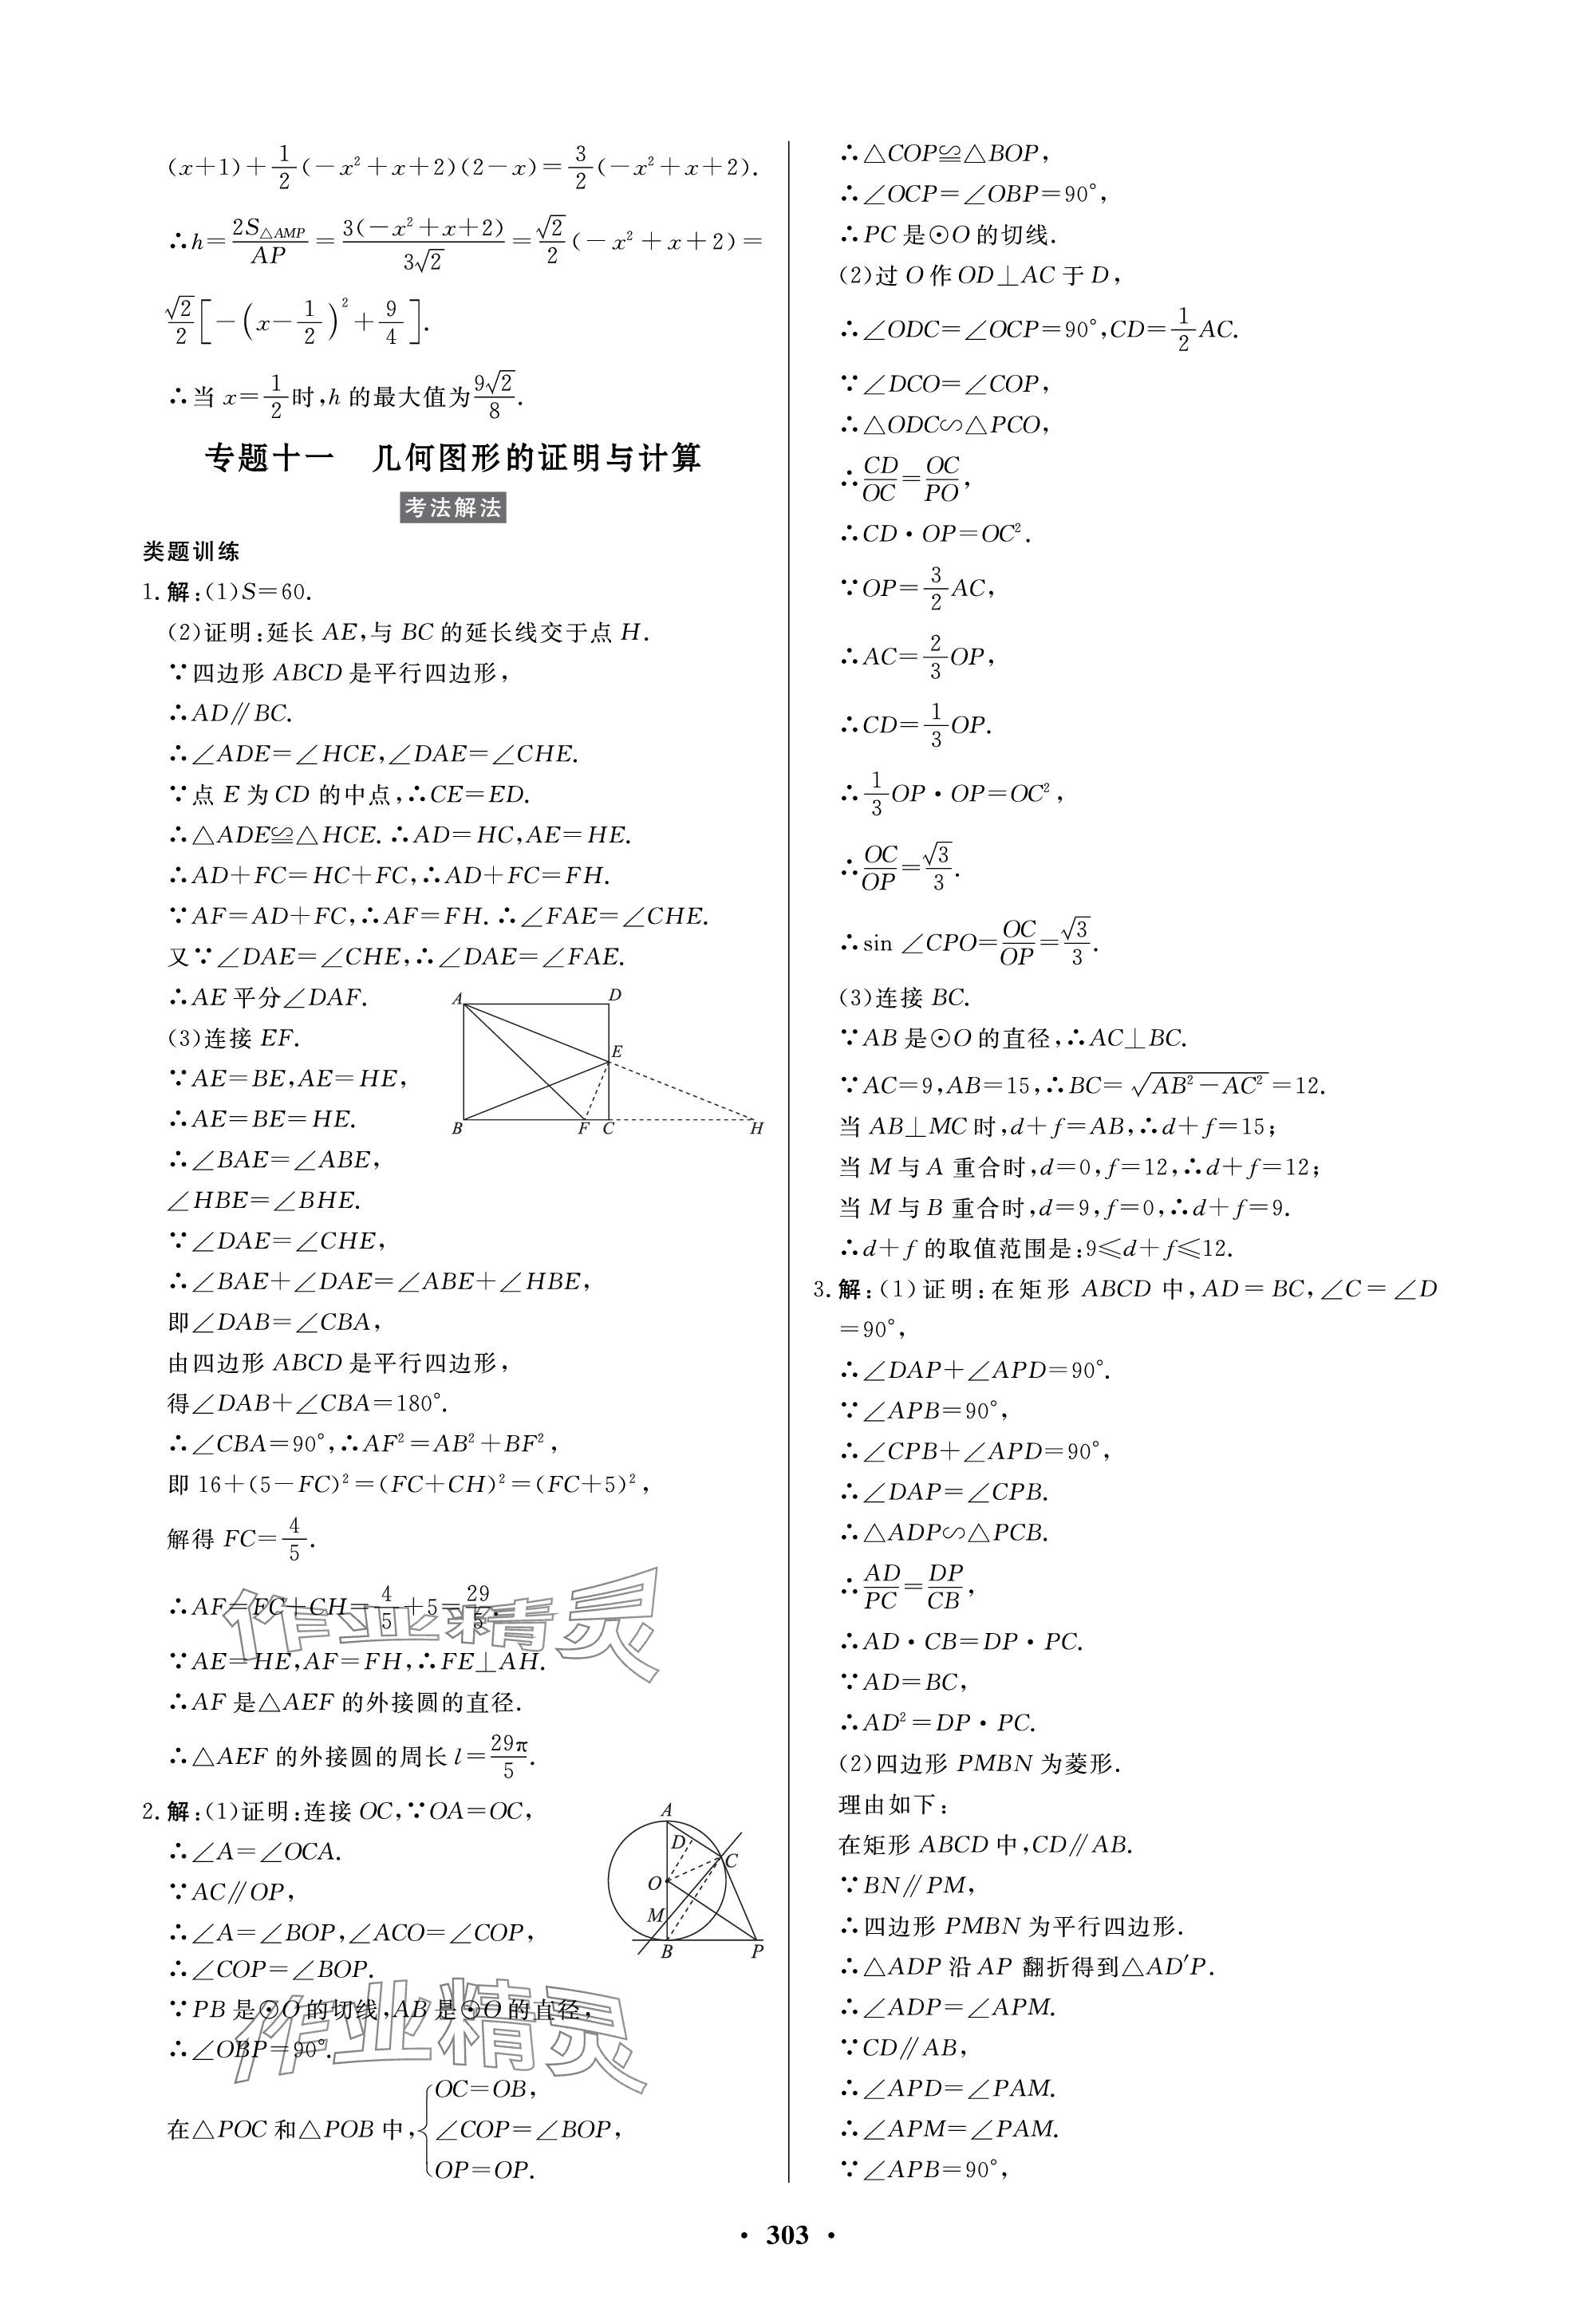 (x+1)+1/2(-x²+x+2)(2-x)=3/2(-x²+x+2).
∴h=2S△AMP/AP=3(-x²+x+2)/3√2=√2/2(-x²+x+2)=
√2/2[-(x-1/2)²+9/4].
∴当x=1/2时,h的最大值为9√2/8.
专题十一 几何图形的证明与计算
考法解法
类题训练
1.解:(1)S=60.
(2)证明:延长AE,与BC的延长线交于点H.
∵四边形ABCD是平行四边形,
∴AD∥BC.
∴∠ADE=∠HCE,∠DAE=∠CHE.
∵点E为CD的中点,∴CE=ED.
∴△ADE≌△HCE.∴AD=HC,AE=HE.
∴AD+FC=HC+FC,∴AD+FC=FH.
∵AF=AD+FC,∴AF=FH.∴∠FAE=∠CHE.
又∵∠DAE=∠CHE,∴∠DAE=∠FAE.
∴AE平分∠DAF.
(3)连接EF.
∵AE=BE,AE=HE,
∴AE=BE=HE.
∴∠BAE=∠ABE,
∠HBE=∠BHE.
A D
E
B F C H
∵∠DAE=∠CHE,
∴∠BAE+∠DAE=∠ABE+∠HBE,
即∠DAB=∠CBA,
由四边形ABCD是平行四边形,
得∠DAB+∠CBA=180°.
∴∠CBA=90°,∴AF²=AB²+BF²,
即16+(5-FC)²=(FC+CH)²=(FC+5)²,
解得FC=4/5.
∴AF=FC+CH=4/5+5=29/5.
∵AE=HE,AF=FH,∴FE⊥AH.
∴AF是△AEF的外接圆的直径.
∴△AEF的外接圆的周长l=29π/5.
作业精灵
2.解:(1)证明:连接OC,∵OA=OC,
∴∠A=∠OCA.
∵AC∥OP,
∴∠A=∠BOP,∠ACO=∠COP,
∴∠COP=∠BOP.
A
D
C
O
M
B P
∵PB是⊙O的切线,AB是⊙O的直径,
∴∠OBP=90°.
作业精灵
在△POC和△POB中,{OC=OB,
∠COP=∠BOP,
OP=OP.
∴△COP≌△BOP,
∴∠OCP=∠OBP=90°,
∴PC是⊙O的切线.
(2)过O作OD⊥AC于D,
∴∠ODC=∠OCP=90°,CD=1/2AC.
∵∠DCO=∠COP,
∴△ODC∽△PCO,
∴CD/OC=OC/PO,
∴CD·OP=OC².
∵OP=3/2AC,
∴AC=2/3OP,
∴CD=1/3OP.
∴1/3OP·OP=OC²,
∴OC/OP=√3/3.
∴sin ∠CPO=OC/OP=√3/3.
(3)连接BC.
∵AB是⊙O的直径,∴AC⊥BC.
∵AC=9,AB=15,∴BC=√(AB²-AC²)=12.
当AB⊥MC时,d+f=AB,∴d+f=15;
当M与A重合时,d=0,f=12,∴d+f=12;
当M与B重合时,d=9,f=0,∴d+f=9.
∴d+f的取值范围是:9≤d+f≤12.
3.解:(1)证明:在矩形ABCD中,AD=BC,∠C=∠D
=90°,
∴∠DAP+∠APD=90°.
∵∠APB=90°,
∴∠CPB+∠APD=90°,
∴∠DAP=∠CPB.
∴△ADP∽△PCB.
∴AD/PC=DP/CB,
∴AD·CB=DP·PC.
∵AD=BC,
∴AD²=DP·PC.
(2)四边形PMBN为菱形.
理由如下:
在矩形ABCD中,CD∥AB.
∵BN∥PM,
∴四边形PMBN为平行四边形.
∴△ADP沿AP翻折得到△AD′P.
∴∠ADP=∠APM.
∵CD∥AB,
∴∠APD=∠PAM.
∴∠APM=∠PAM.
∵∠APB=90°,
· 303 ·